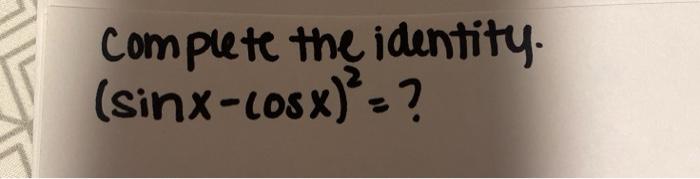 Complete the identity.
(sinx-cosx)²=?